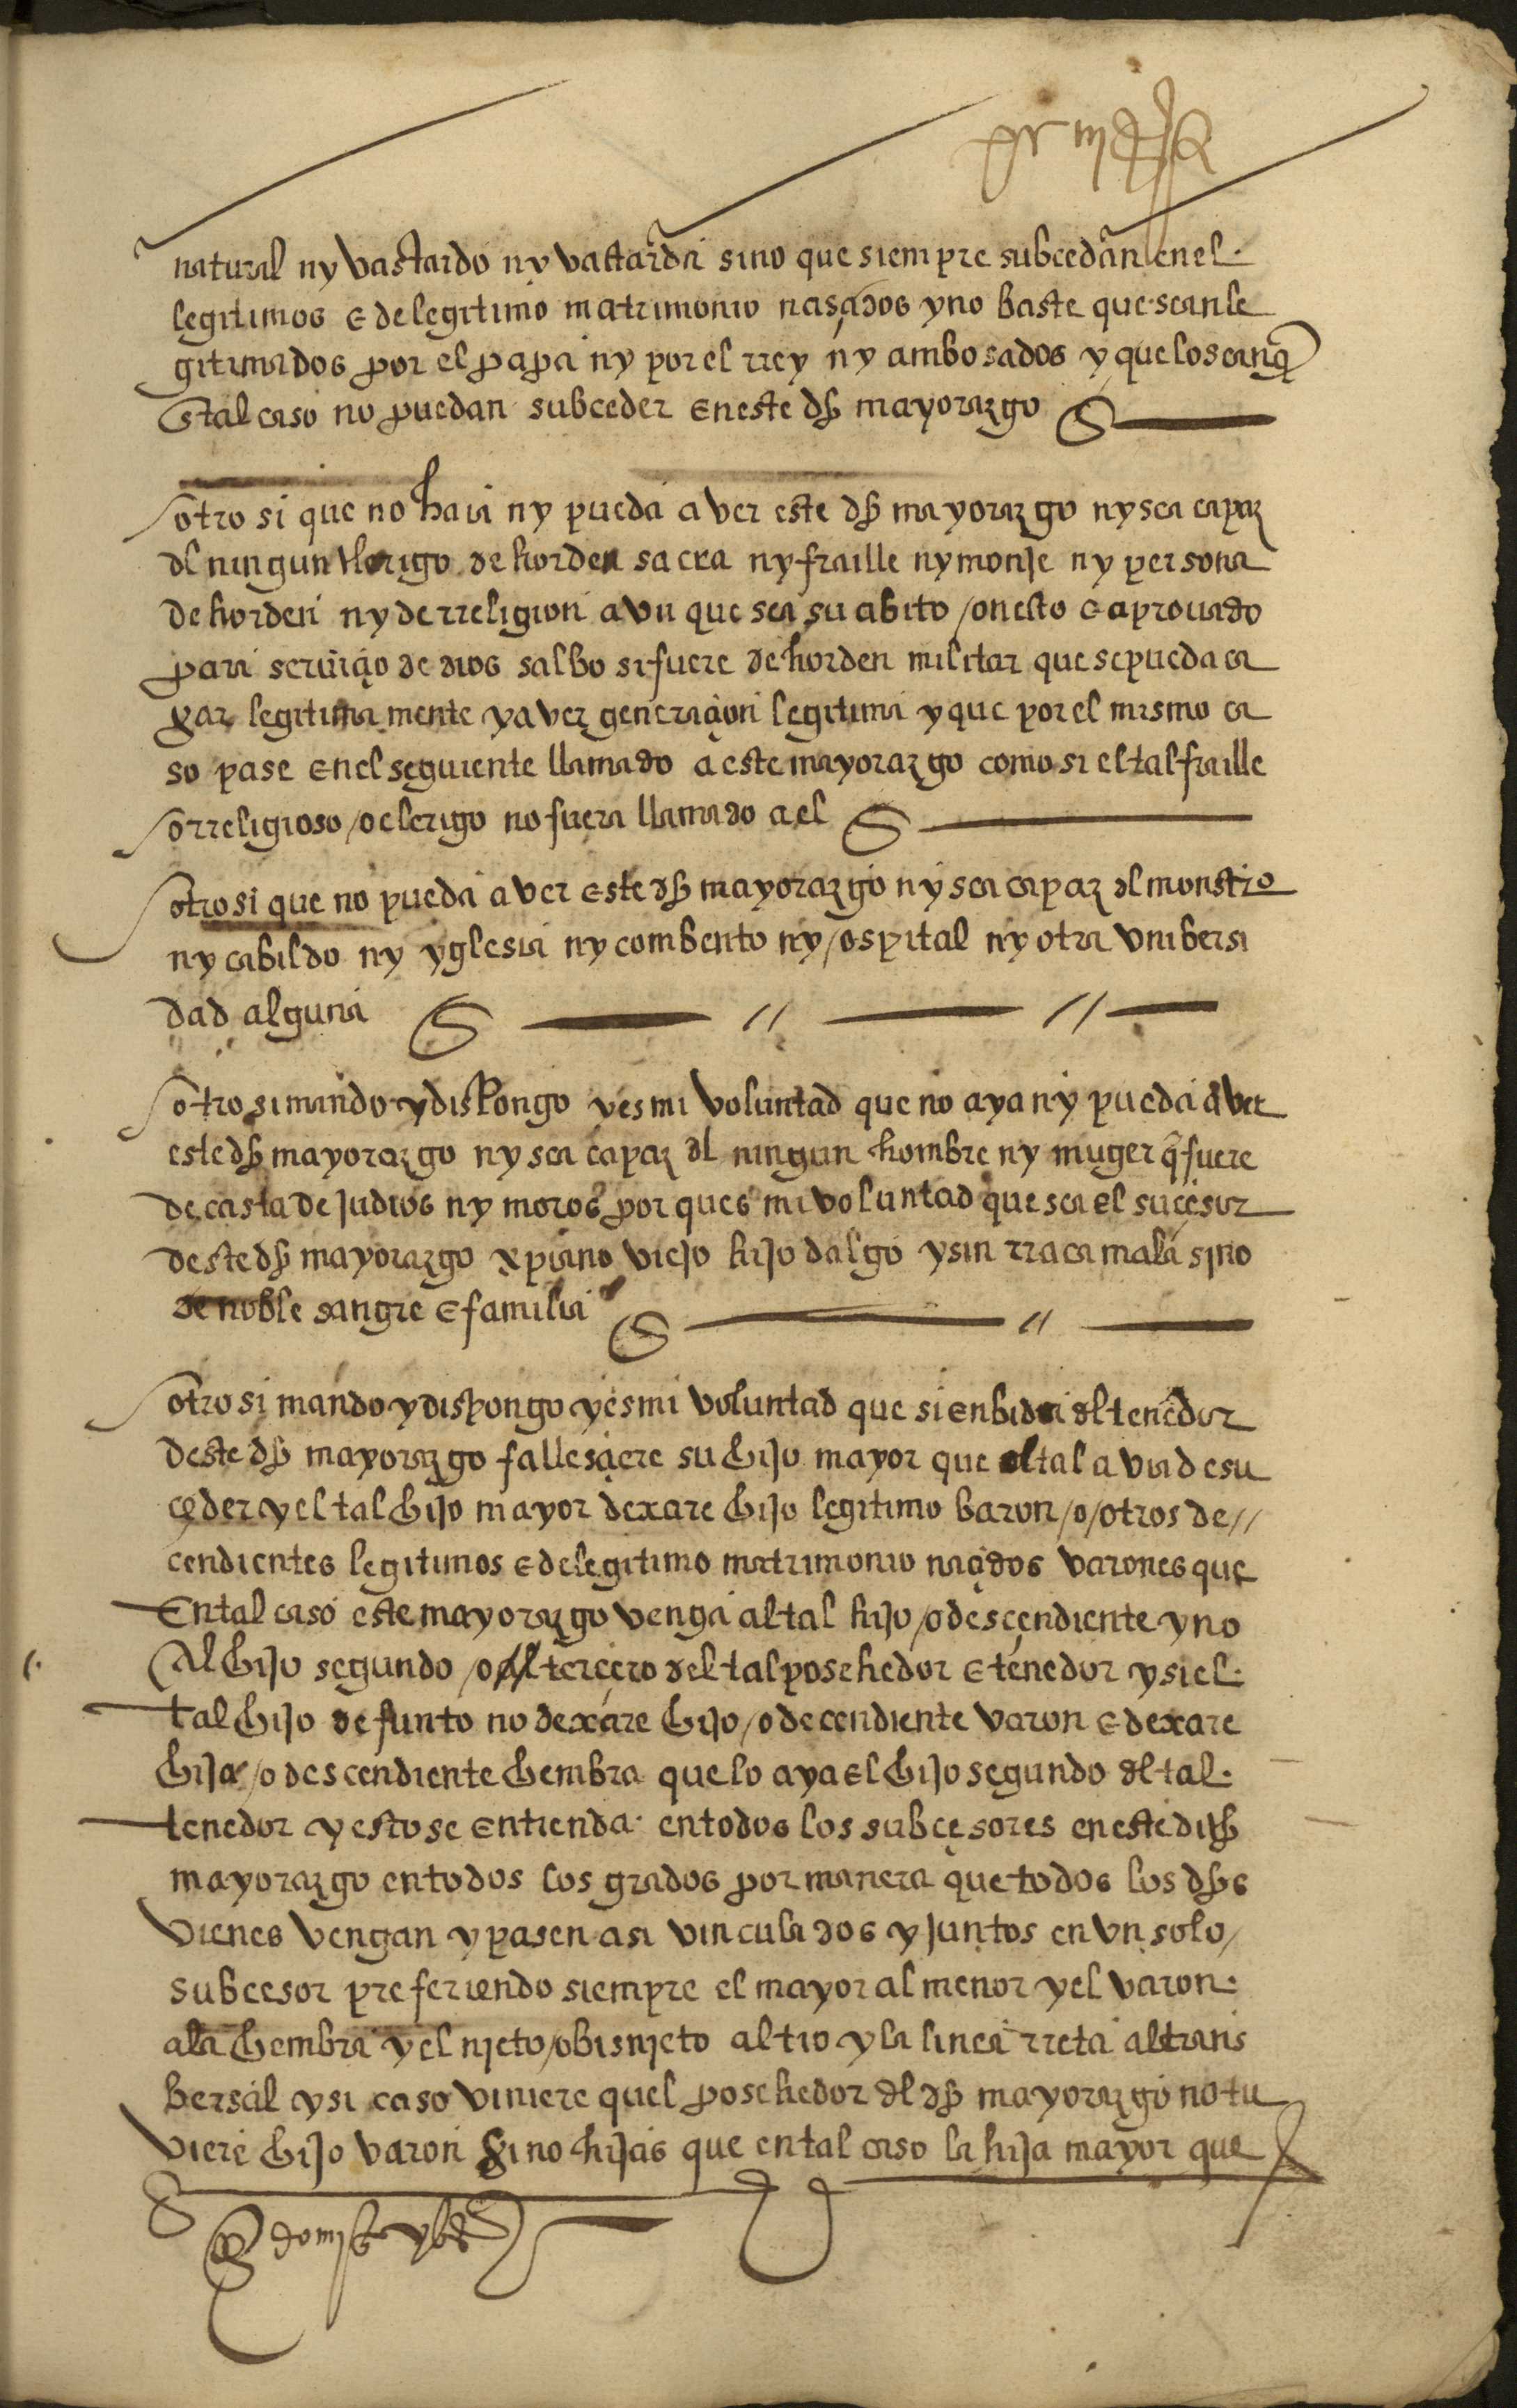 natural ny vastardo ny vastarda sino que siempre subcedan en el
legitimos e de legitimo matrimonio nasçidos y no baste que sean le
gitimados por el papa ny por el rrey ny ambos ados y que lo sean q̃
en tal caso no puedan subceder en este dho mayorazgo
otro si que no haia ny pueda aver este dho mayorazgo ny sea capaz
del ningun clerigo de horden sacra ny fraille ny monje ny persona
de horden ny de rreligion avn que sea su abito / onesto e aprouado
para seruiçio de dios salbo si fuere de horden militar que se pueda ca
sar legitima mente y aver generaçion legitima y que por el mismo ca
so pase en el seguiente llamado a este mayorazgo como si el tal fraille
o rreligioso / o clerigo no fuera llamado a el
otro si que no pueda aver este dho mayorazgo ny sea capaz del monestrio
ny cabildo ny yglesia ny combento ny / ospital ny otra vnibersi
dad alguna
otro si mando y dispongo y es mi voluntad que no aya ny pueda aver
este dho mayorazgo ny sea capaz del ningun hombre ny muger q̃ fuere
de casta de judios ny moros por ques mi voluntad que sea el suçesor
deste dho mayorazgo xpiano viejo hijo dalgo y sin rraca mala sino
de noble sangre e familia
otro si mando y dispongo y es mi voluntad que si en bida del tenedor
deste dho mayorazgo fallesçiere su hijo mayor que el tal avia de su
çeder y el tal hijo mayor dexare hijo legitimo baron /o/ otros de//
cendientes legitimos e de legitimo matrimonio naçidos varones que
en tal caso este mayorazgo venga al tal hijo / o desçendiente y no
al hijo segundo / o al terçero del tal posehedor e tenedor y si el
tal hijo defunto no dexare hijo / o decendiente varon e dexare
hija / o descendiente hembra que lo aya el hijo segundo del tal
tenedor y esto se entienda en todos los subçesores en este dicho
mayorazgo en todos los grados por manera que todos los dhos
vienes vengan y pasen asi vinculados y juntos en vn solo /
subcesor prefериendo siempre el mayor al menor y el varon
a la hembra y el nieto / o bisnieto al tio y la linea rreta al trans
bersal y si caso viniere quel posehedor del dho mayorazgo no tu
viere hijo varon sino hijas que en tal caso la hija mayor que